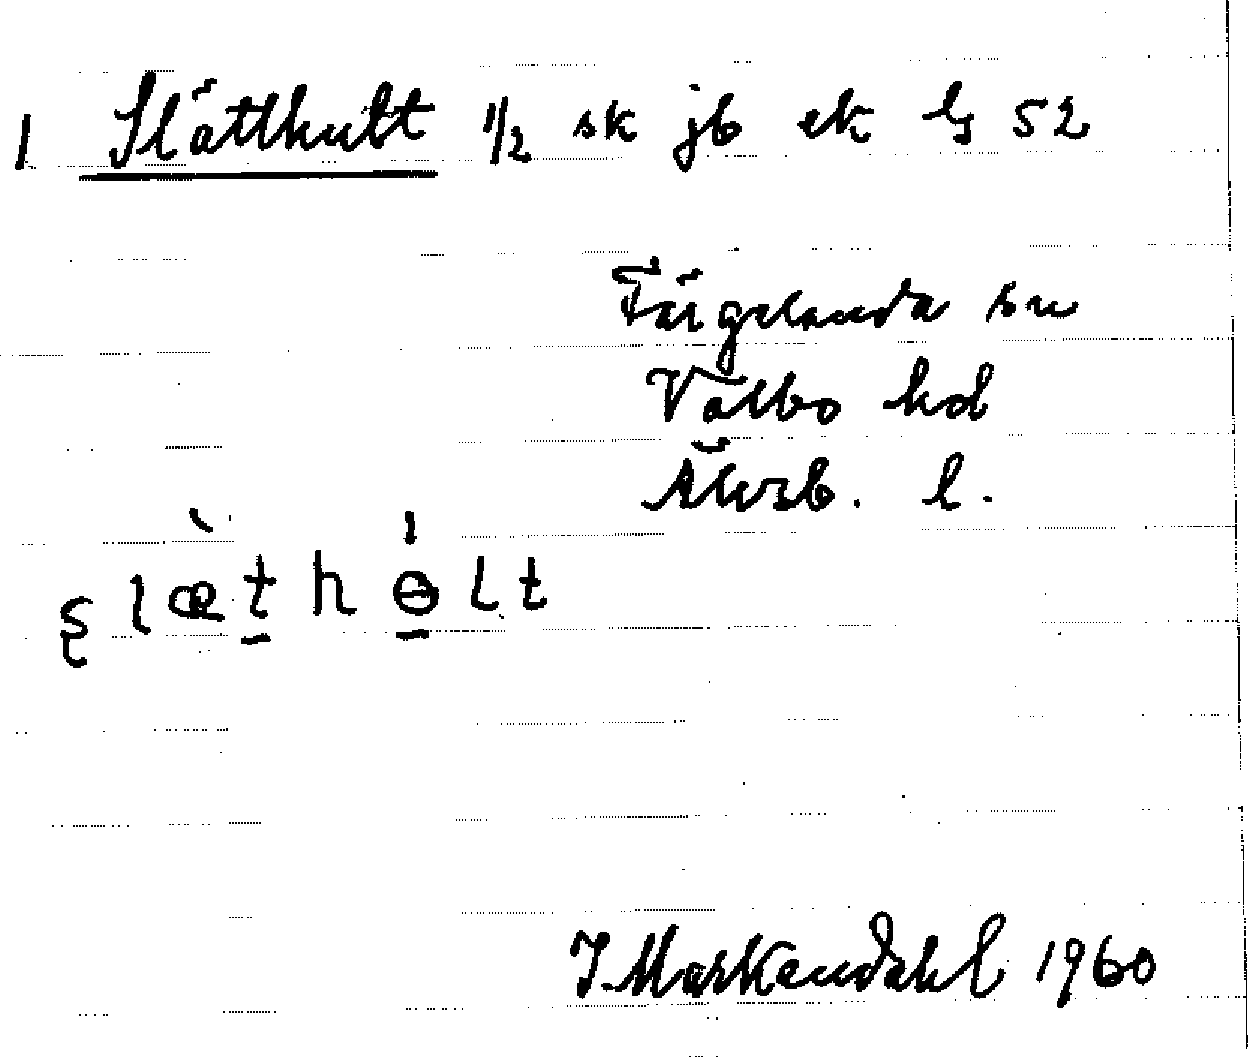 1 Slätthult 1/2 sk jb ek G 52
Färgelanda sn
Valbo hd
Älvsb. l.
ʂlæ̀thɵ́lt
J. Markendahl 1960